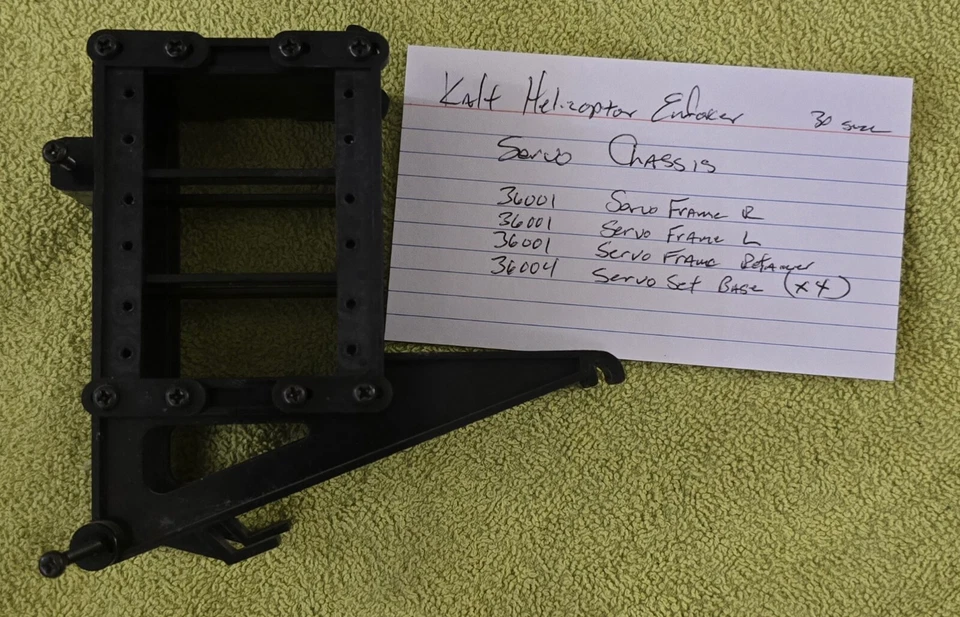 Kalt Helicopter Enforcer 30 size
Servo Chassis
36001 Servo Frame R
36001 Servo Frame L
36001 Servo Frame Retainer
36004 Servo Set Base (x4)